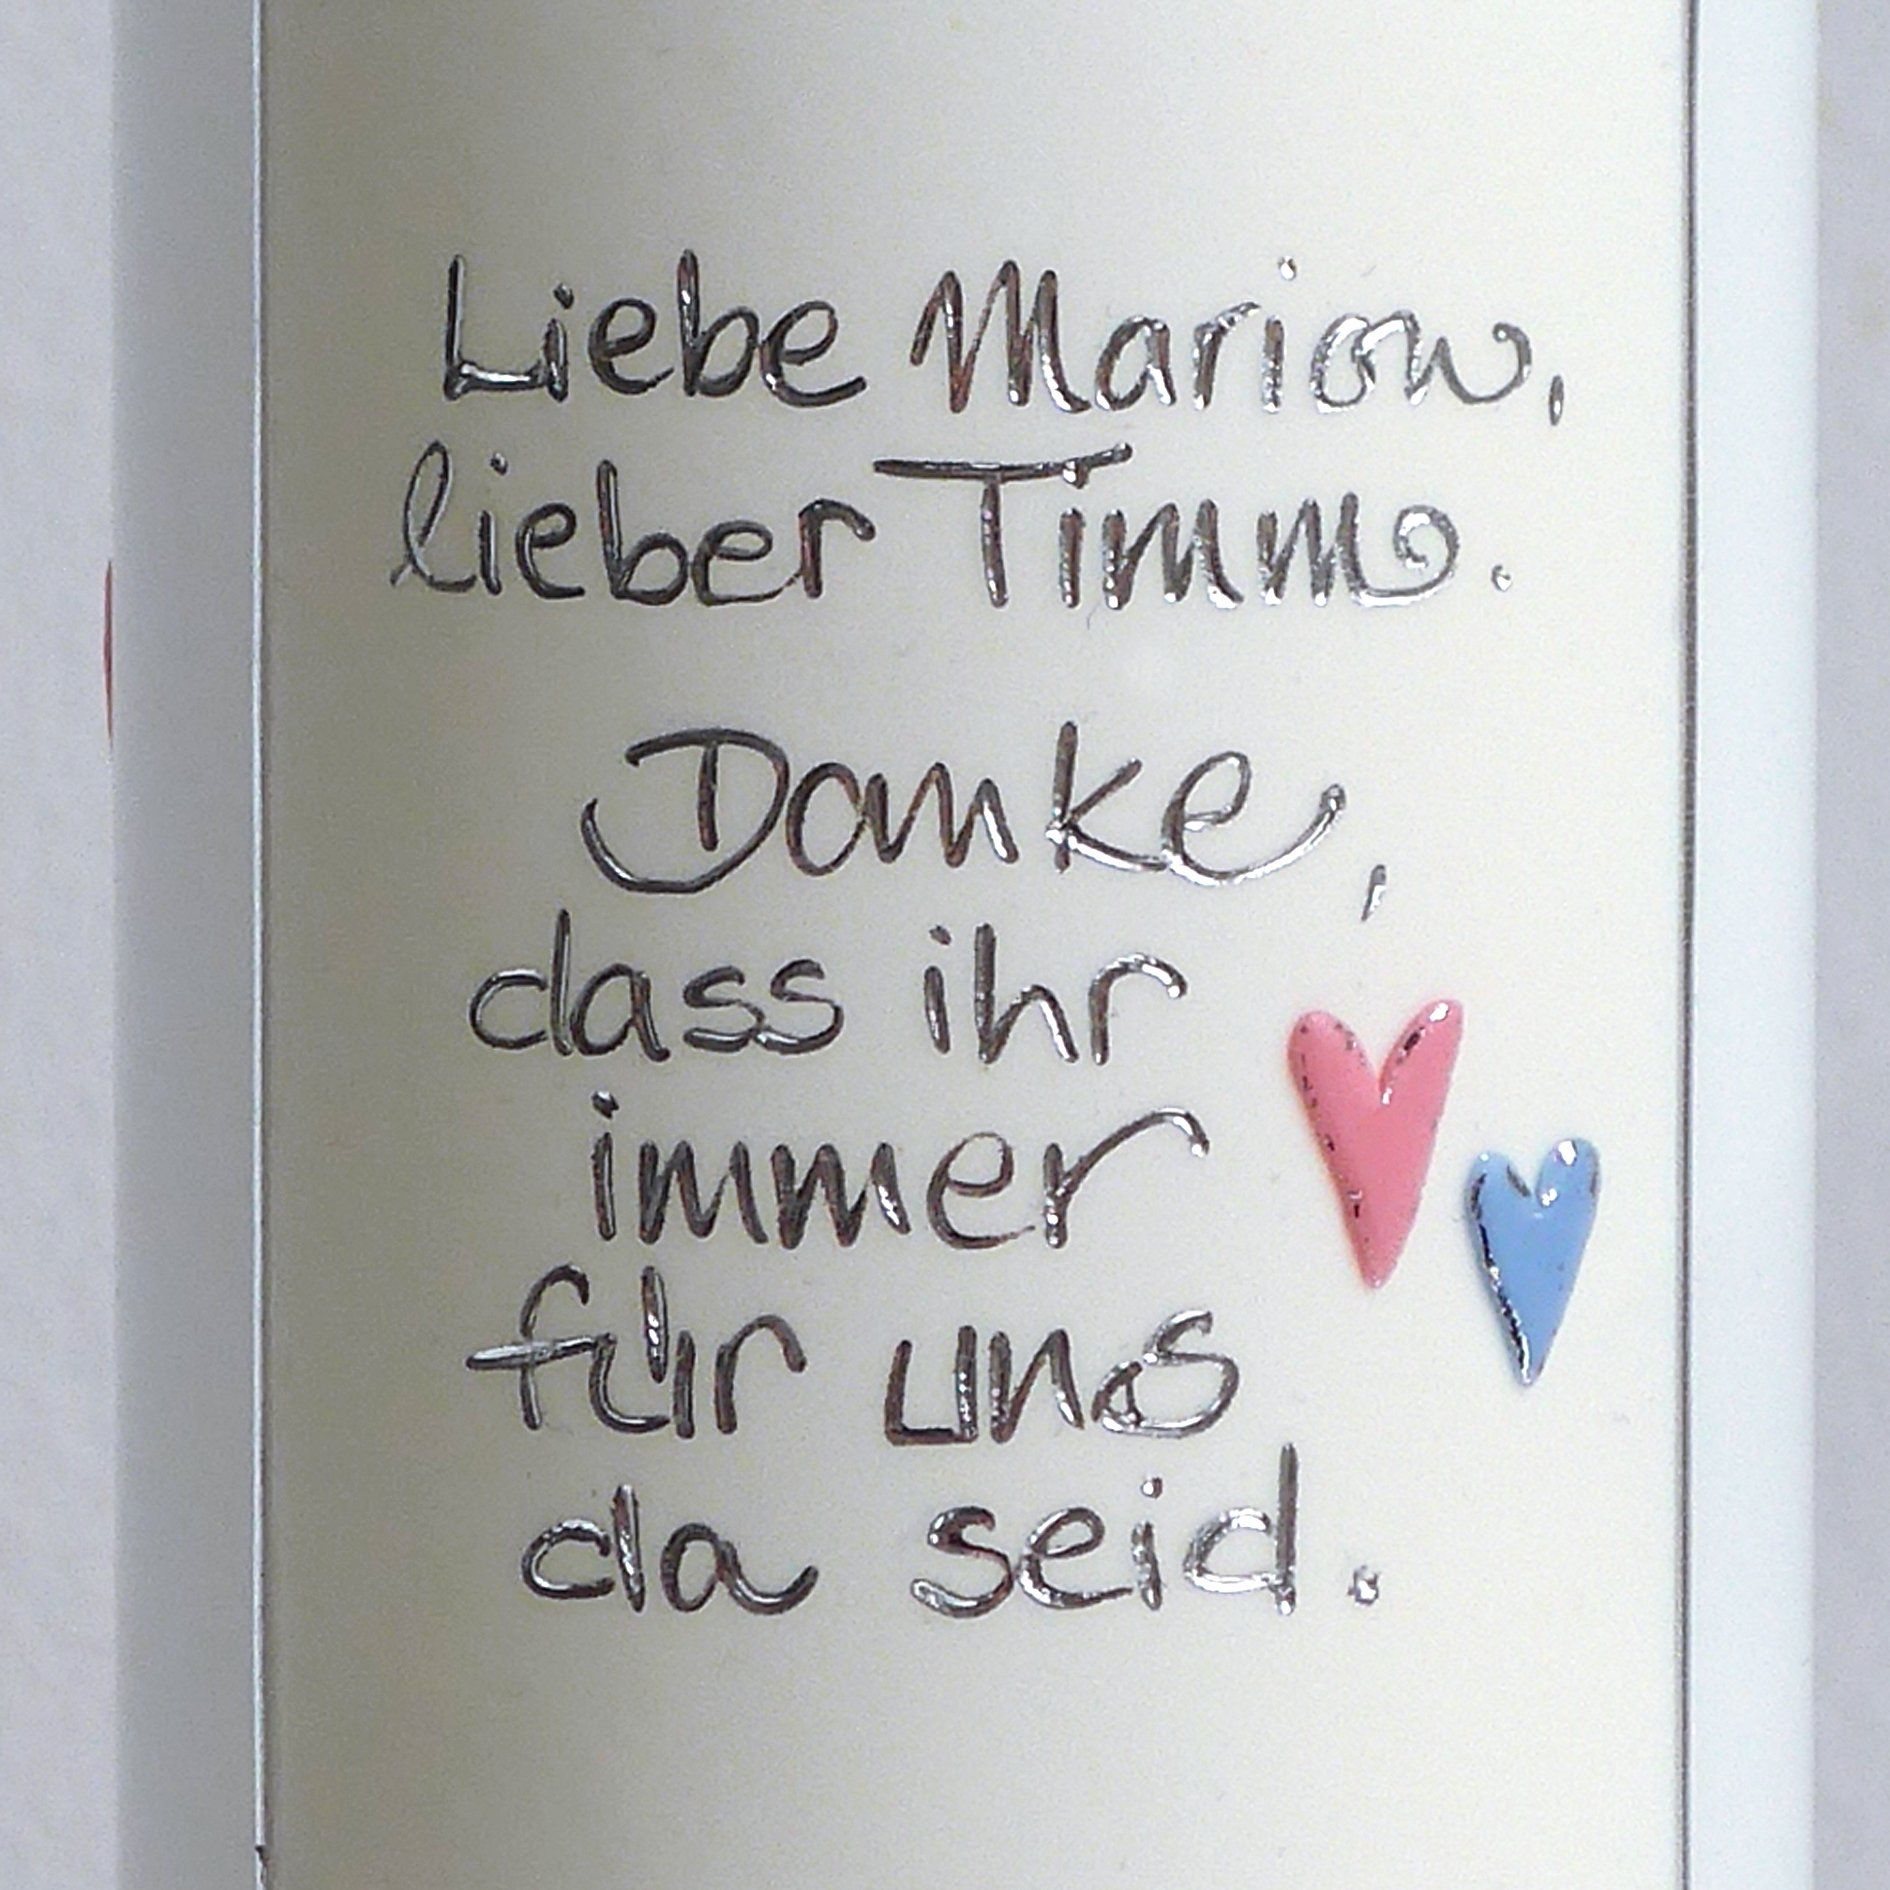 Liebe Marion,
lieber Timm.
Danke,
dass ihr
immer
für uns
da seid.